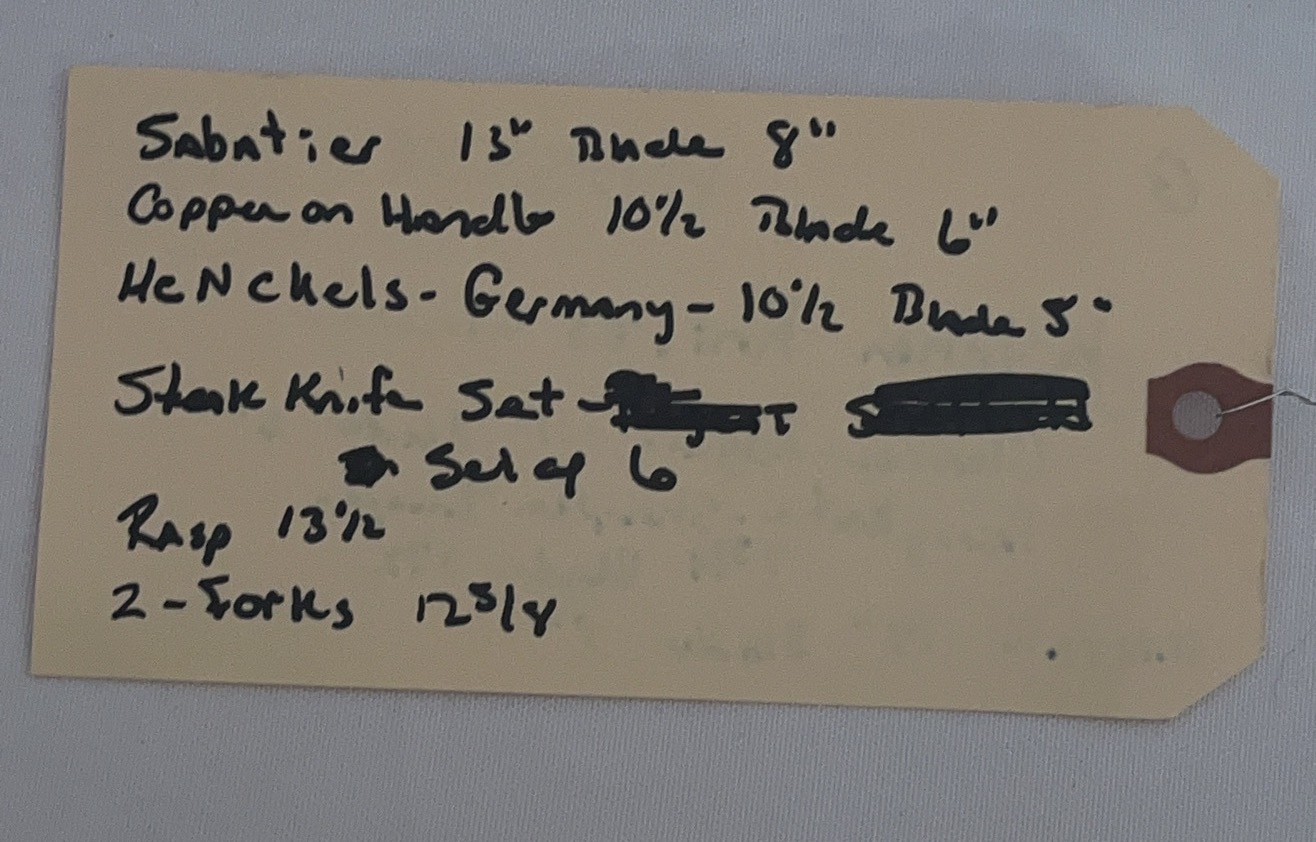 Sabatier 13" Blade 8"
Copper on Handle 10 1/2 Blade 6"
HeNckels - Germany - 10 1/2 Blade 5"
Steak Knife Set -
Set of 6
Rasp 13 1/2
2 - Forks 12 5/8